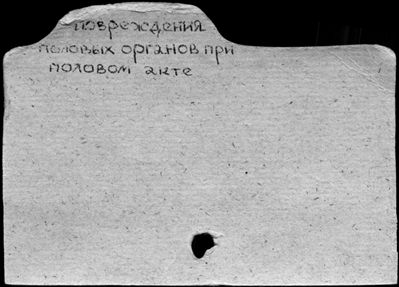 повреждения
половых органов при
половом акте